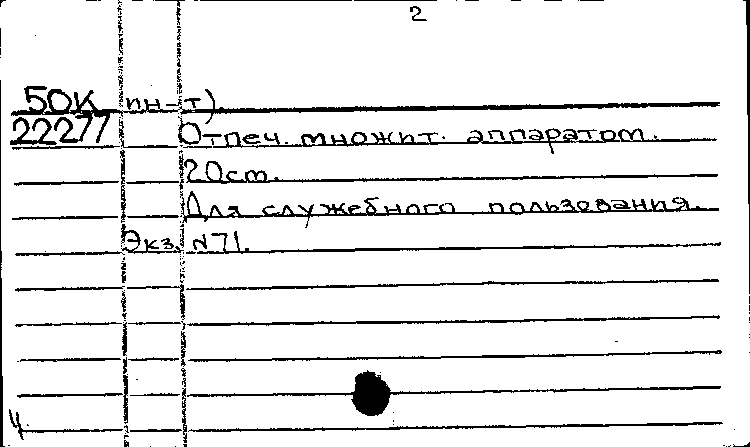 2
50К ин-т).
22277 Отпеч. множит. аппаратом.
20см.
Для служебного пользования.
Экз. N71.